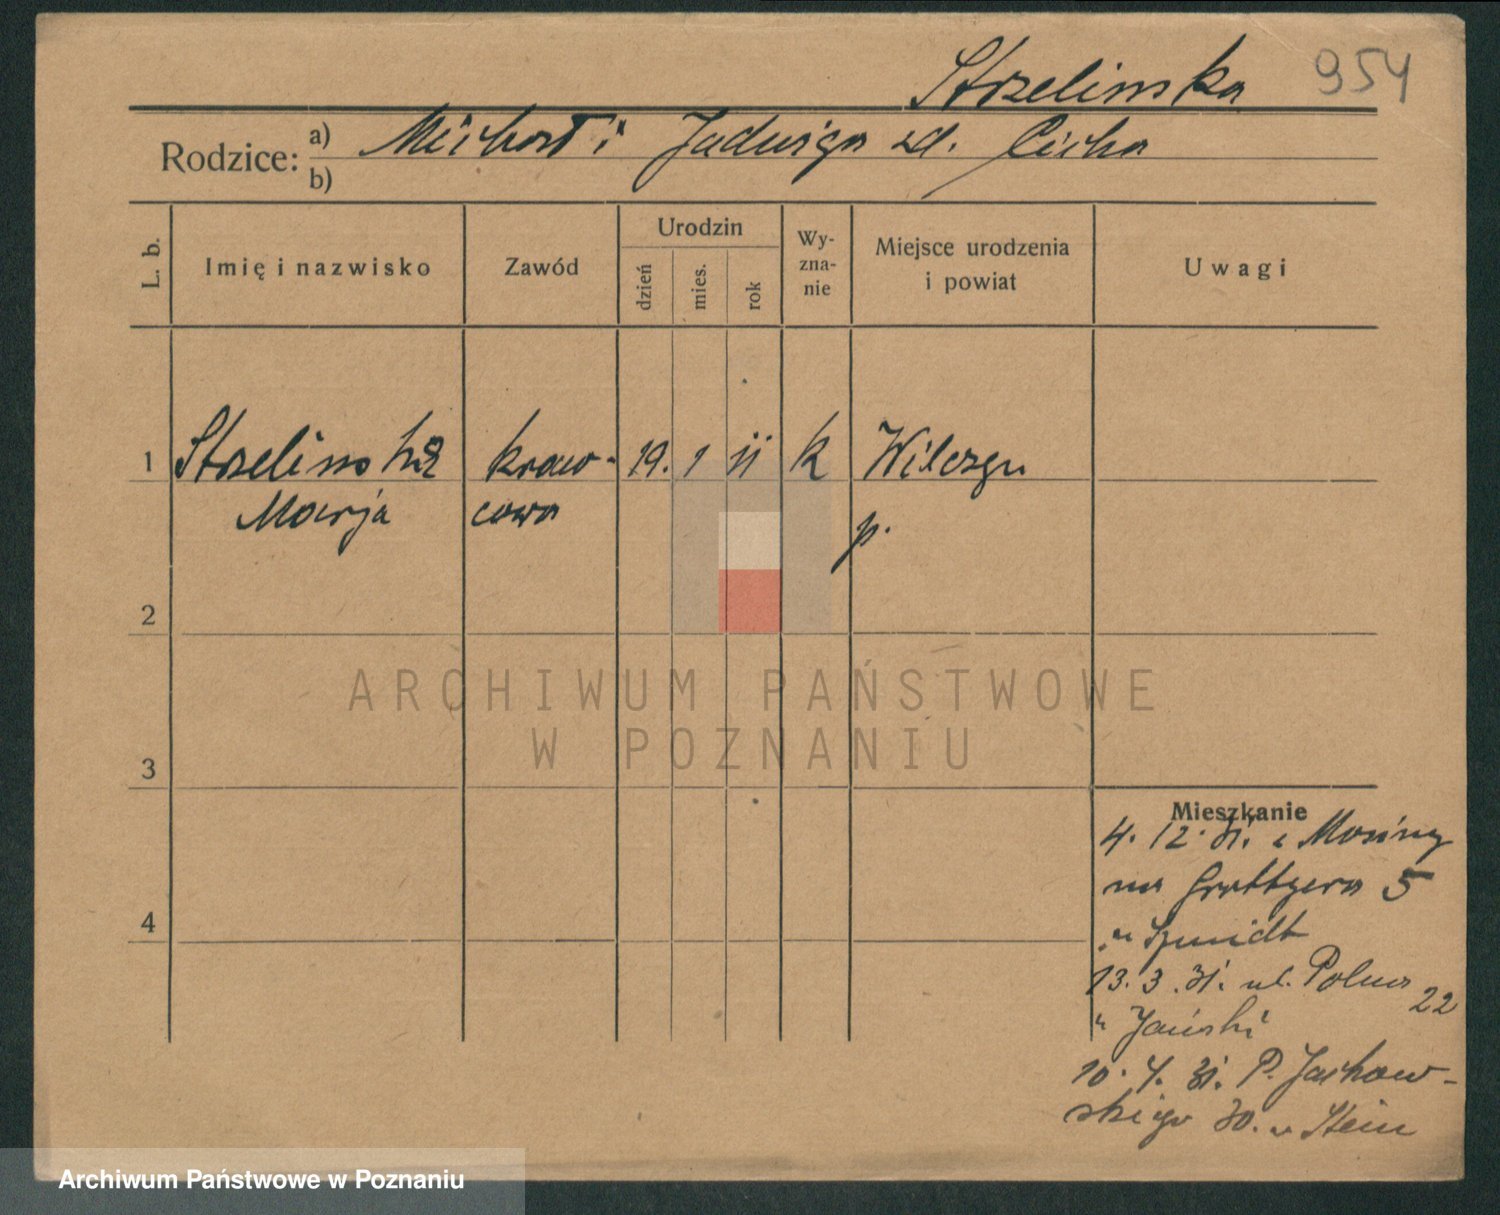 Strzelinska 954
Rodzice: a) Michał i Jadwiga zd. Cicha
b)
L. b.
Imię i nazwisko
Zawód
Urodzin
dzień
mies.
rok
Wy-
zna-
nie
Miejsce urodzenia
i powiat
Uwagi
1 Strzelinska kraw- 19. 1 11 k Wilczyn
Marja cowa p.
2
ARCHIWUM PAŃSTWOWE
W POZNANIU
3
Mieszkanie
4. 12. 31. z Mosiny
na Grottgera 5
u Szmidt
4
13. 3. 31. ul. Polna 22
u Jański
10. 4. 31. P. Jackow-
skiego 30. u Stein
Archiwum Państwowe w Poznaniu